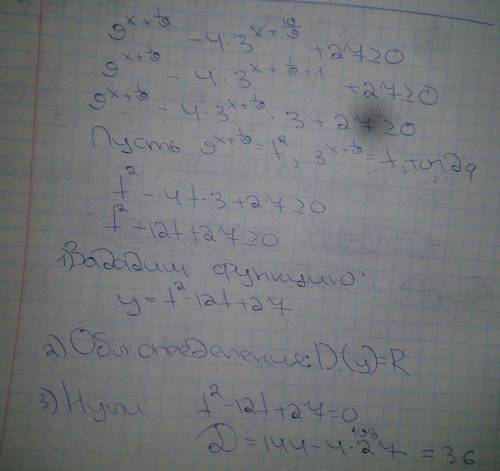 9^{x+1/9} - 4·3^{x+10/9} + 27≥0
9^{x+1/9} - 4·3^{x+1/9+1} + 27≥0
9^{x+1/9} - 4·3^{x+1/9}·3 + 27≥0
Пусть 9^{x+1/9}=t², 3^{x+1/9}=t, тогда
t² - 4t·3 + 27≥0
t² - 12t + 27≥0
1) Зададим функцию:
y = t² - 12t + 27
2) Обл. определения: D(y)=R
3) Нули t² - 12t + 27 = 0
108
D = 144 - 4·27 = 36